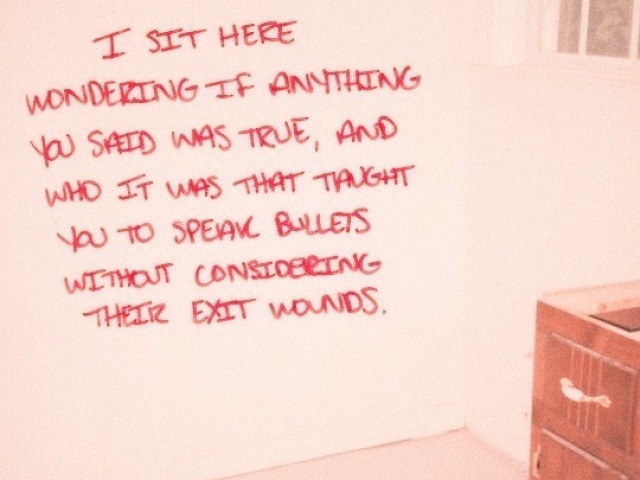 I SIT HERE
WONDERING IF ANYTHING
YOU SAID WAS TRUE, AND
WHO IT WAS THAT TAUGHT
YOU TO SPEAK BULLETS
WITHOUT CONSIDERING
THEIR EXIT WOUNDS.